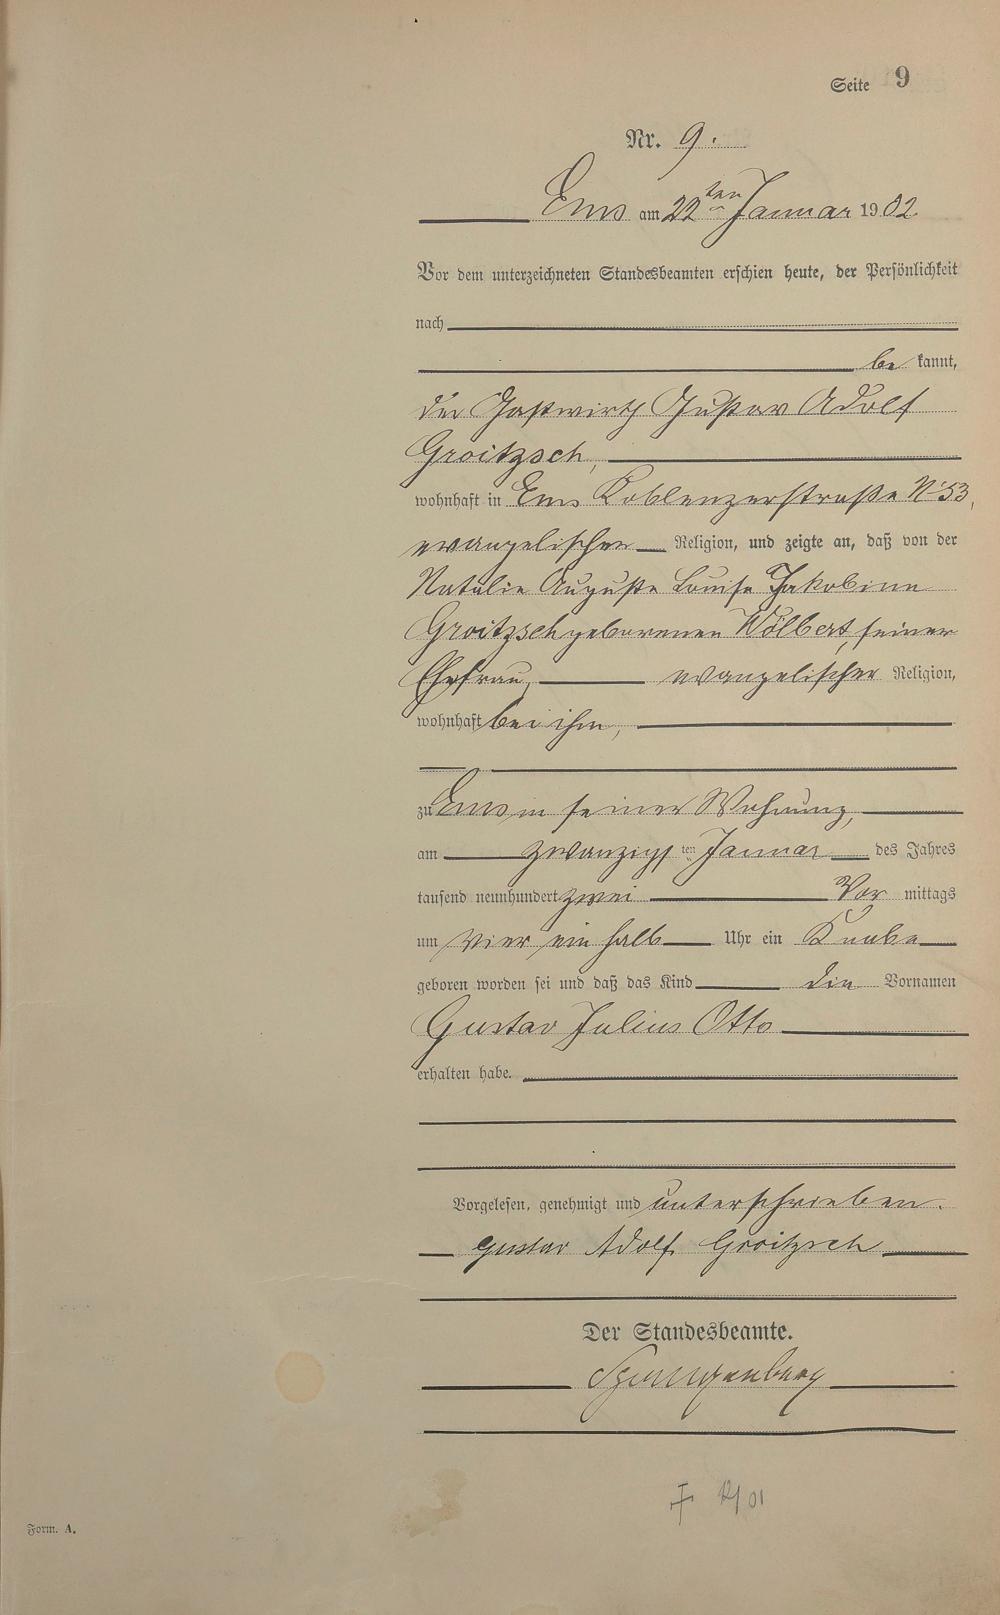 Seite 9
Nr. 9.
Ems am 22ten Januar 1902.
Vor dem unterzeichneten Standesbeamten erschien heute, der Persönlichkeit
nach
be kannt,
der Gastwirth Gustav Adolf
Groitzsch,
wohnhaft in Ems Koblenzerstraße No 53,
evangelischer Religion, und zeigte an, daß von der
Natalie Auguste Louise Jakobine
Groitzsch geborenen Wölbert, seiner
Ehefrau, evangelischer Religion,
wohnhaft bei ihm,
zu Ems in seiner Wohnung,
am zwanzigsten Januar des Jahres
tausend neunhundert zwei Vor mittags
um vier ein halb Uhr ein Knabe
geboren worden sei und daß das Kind die Vornamen
Gustav Julius Otto
erhalten habe.
Vorgelesen, genehmigt und unterschrieben.
Gustav Adolf Groitzsch
Der Standesbeamte.
Form. A.